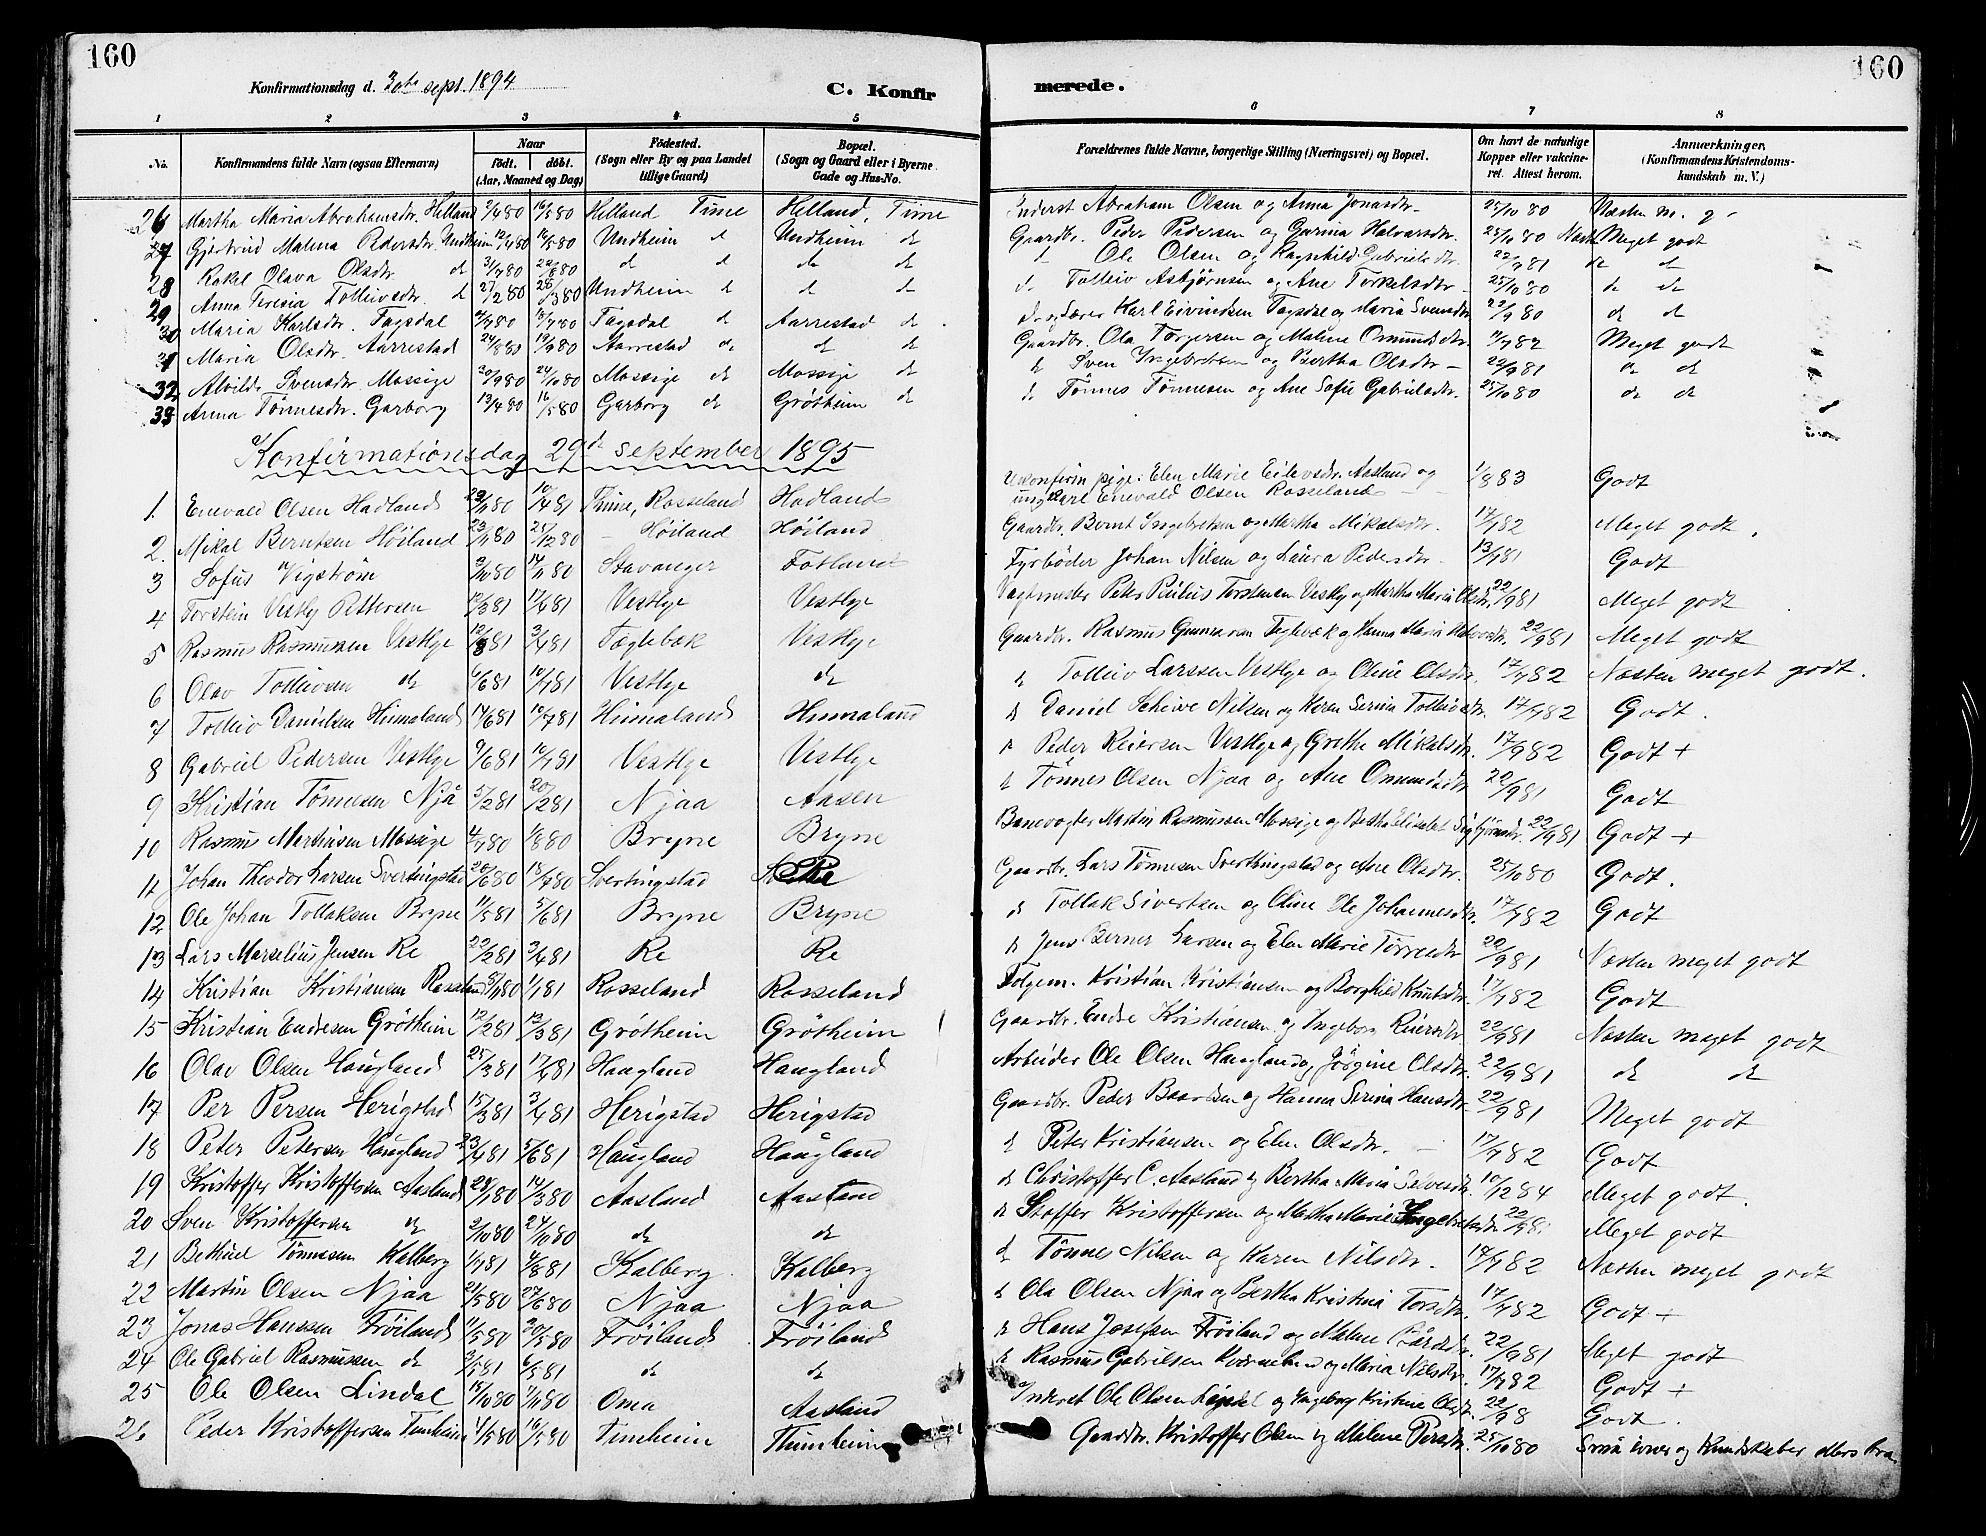 160
160
Konfirmationsdag d. 30te sept. 1894
C. Konfir
merede.
1 2 3 4 5 6 7 8
No.
Konfirmandens fulde Navn (ogsaa Efternavn)
Naar
født. døbt.
(Aar, Maaned og Dag)
Födested.
(Sogn eller By og paa Landet
tillige Gaard)
Bopæl.
(Sogn og Gaard eller i Byerne
Gade og Hus-No.
Forældrenes fulde Navne, borgerlige Stilling (Næringsvei) og Bopæl.
Om havt de naturlige
Kopper eller vakcine-
ret. Attest herom.
Anmærkninger.
(Konfirmandens Kristendoms-
kundskab m. V.)
26 Martha Maria Abrahamsdr. Helland 2/4 80 16/5 80 Helland Time Helland, Time Inderst Abraham Olsen og Anna Jonasdr. 25/10 80 Næsten m. g.
27 Gjertrud Malena Pedersdr. Undheim 12/4 80 16/5 80 Undheim d Undheim d Gaardbr. Peder Pedersen og Gurina Halvarsdr. 25/10 80 Næst Meget godt
28 Rakel Olava Olsdr d 31/7 80 22/8 80 d d d d d Ole Olsen og Ragnhild Gabrielsdtr. 22/9 81 d d
29 Anna Teresia Tolleivsdr. d 27/2 80 28/3 80 Undheim d d d d Tolleiv Asbjørnsen og Ane Torkelsdtr 25/10 80 d d
30 Maria Karlsdr. Tagsdal 4/7 80 18/7 80 Tagsdal d Aarrestad d. Do og Lærer Karl Eivindsen Tagsdal og Maria Svensdtr 22/9 80 d d
31 Maria Olsdr. Aarrestad 24/8 80 19/9 80 Aarrestad d d d Gaardbr. Ola Torgersen og Malene Omundsdtr. 17/7 82 Meget godt
32 Alvilde Svensdr. Mossige 20/9 80 24/10 80 Mossige d Mossige d d Sven Ingebretsen og Bertha Olsdr 22/9 81 d d
33 Anna Tönnesdr. Garborg 13/4 80 16/5 80 Garborg d Grötheim d d Tönnes Tönnesen og Ane Sofie Gabrielsdr. 25/10 80 d d
Konfirmationsdag 29d september 1895
1. Enevald Olsen Hadland 29/11 80 10/4 81 Thime, Rosseland Hadland Ukonfirm. pige: Elen Marie Eilevsdr. Aasland og 1/8 83 Godt
ungkarl Enevald Olsen Rosseland
2. Mikal Berntsen Höiland 23/11 80 25/12 80 Höiland Höiland Gaardbr. Bernt Ingebretsen og Martha Mikalsdr. 17/7 82 Meget godt.
3 Sofus Vigström 2/10 80 14/11 80 Stavanger Fotland Fyrböder Johan Nilsen og Laura Pedersdr 13/9 81 Godt
4 Torstein Vestly Pettersen 12/3 81 17/4 81 Vestlye Vestlye Vagtmester Peter Paulus Torstensen Vestly og Martha Maria Olsdr. 22/9 81 Meget godt
5 Rasmus Rasmussen Vestlye 12/3 81 3/4 81 Taglebæk Vestlye Gaardbr. Rasmus Gunnarsen Taglebæk og Hanna Maria Halvorsdr. 22/9 81 Meget godt
6 Olav Tolleivsen d 6/6 81 10/7 81 Vestlye d d Tolleiv Larssen Vestlye og Oline Olsdr. 17/7 82 Næsten meget godt.
7 Tolleiv Danielsen Hommeland 14/6 81 10/7 81 Himaland Himaland d Daniel Scheive Nilsen og Karen Serina Tolleivsdr. 17/7 82 Godt.
8 Gabriel Pedersen Vestlye 9/6 81 10/7 81 Vestlye Vestlye d Peder Reiersen Vestlye og Grethe Mikalsdr. 17/9 82 Godt +
9 Kristian Tönnesen Njå 5/2 81 20/2 81 Njaa Aasen d Tönnes Olsen Njaa og Ane Omundsdr 22/9 81 Godt
10 Rasmus Martinsen Mossige 4/7 80 1/8 80 Bryne Bryne Banevogter Martin Rasmussen Mossige og Bertha Elisabet Sigbjörnsdr. 22/9 81 Godt +
11 Johan Theodor Larsen Svertingstad 20/6 80 18/7 80 Svertingstad Re Gaardbr. Lars Tönnesen Svertingstad og Ane Olsdtr. 25/10 80 Godt.
12 Ole Johan Tollaksen Bryne 11/5 81 5/6 81 Bryne Bryne d Tollak Sivertsen og Oline Ole Johannesdr. 17/7 82 Godt
13 Lars Marselius Jensen Re 22/2 81 3/4 81 Re Re d Jens Berner Larsen og Elen Marie Torresdtr 22/9 81 Næsten meget godt
14 Kristian Kristiansen Rosseland 8/11 80 1/1 81 Rosseland Rosseland Folgem. Kristian Kristiansen og Borghild Knutsdr. 17/7 82 Godt
15 Kristian Endresen Grötheim 12/2 81 13/3 81 Grötheim Grötheim Gaardbr. Endre Kristiansen og Ingeborg Reiersdtr 22/9 81 Næsten meget godt
16 Olav Olsen Haugland 25/3 81 17/4 81 Haugland Haugland Arbeider Ole Olsen Haugland og Jörgine Olsdtr. 22/9 81 d d
17 Per Persen Herigstad 15/3 81 3/4 81 Herigstad Herigstad Gaardbr. Peder Baardsen og Hanna Serina Hansdtr. 22/9 81 Meget godt
18 Peter Petersen Haugland 23/4 81 5/6 81 Haugland Haugland d Peter Kristiansen og Elen Olsdtr. 17/7 82 Godt
19 Kristoffer Kristoffersen Aasland 28/1 80 14/3 80 Aasland Aasland d Christoffer C. Aasland og Bertha Maria Salvesdr. 10/12 84 Meget godt.
20 Sven Kristoffersen d 2/10 80 24/10 80 d d d Stoffer Kristoffersen og Martha Marie Ingebretsdtr 22/9 81 Meget godt
21 Bethuel Tönnessen Kalberg 1/7 81 4/8 81 Kalberg. Kalberg d Tönnes Nilsen og Karen Nilsdtr. 17/7 82 Næsten meget godt
22 Martin Olsen Njaa 21/5 80 27/6 80 Njaa Njaa d Ola Olsen Njaa og Bertha Kristina Torsdtr. 17/7 82 Godt +
23 Jonas Hanssen Fröiland 11/5 80 30/5 80 Fröiland Fröiland d Hans Josefsen Fröiland og Malene Bårdsdr. 22/9 81 Meget godt
24 Ole Gabriel Rasmussen d 3/5 81 6/5 81 d d d Rasmus Gabrielsen Kværneland og Maria Nilsdtr. 17/7 82 Godt +
25 Ole Olsen Lindal 14/10 80 7/11 80 Oma Aasland Inderst Ole Olsen Lindal og Ingeborg Kristine Olsdr. 22/9 8 Godt.
26 Peder Kristoffersen Tunheim 4/5 80 16/5 80 Tunheim Thunheim Gaardbr. Kristoffer Olsen og Malene Persdtr. 25/10 80 Små evner og Kundskaber ellers bra.